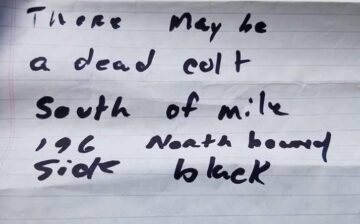 There May be
a dead colt
South of mile
196 North bound
side black